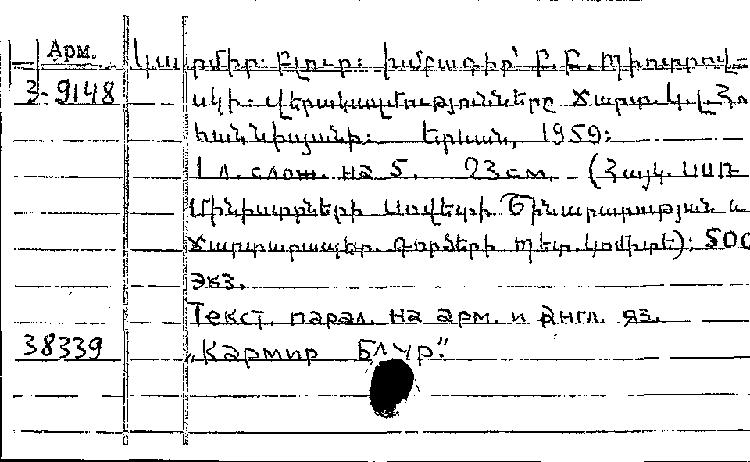 Арм.
3-9148
Կարմիր Բլուր։ խմբագիր՝ Բ. Բ. Պիոտրով-
սկի։ վերակազմությունները Ճարտ. Կ. Լ. Հո
հաննիսյանի։ Երևան, 1959։
1 л. слож. на 5. 23 см. (Հայկ. ՍՍՌ
Մինիստրների Սովետի Շինարարության և
Ճարտարապետ. Գործերի Պետ. կոմիտե)։ 500
экз.
Текст. парал. на арм. и англ. яз.
38339
„Кармир Блур."